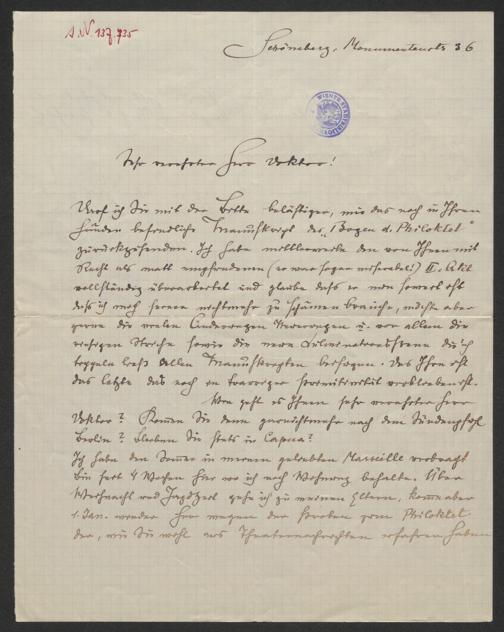 I.N 137.735
Schöneberg, Monumentenstr 36
WIENER
Sehr verehrter Herr Doktor!
Darf ich Sie mit der Bitte belästigen, mir das noch in Ihren
Händen befindliche Manuskript des "Bogen d. Philoktet"
zurückzusenden. Ich habe mittlerweile den von Ihnen mit
Recht als matt empfundenen (er war sogar miserabel!) II. Akt
vollständig überarbeitet und glaube daß er nun soweit ist
daß ich mich seiner nichtmehr zu schämen brauche, möchte aber
gerne die vielen Änderungen u. vor allem die
Striche sowie die neue die ich
ließ allen Manuskripten beifügen. Das Ihre ist
das letzte das noch in verblieben ist.
Wie geht es Ihnen sehr verehrter Herr
Doktor? Kommen Sie denn garnichtmehr nach dem Sündenpfuhl
Berlin? Bleiben Sie stets in Capua?
Ich habe den Sommer in meinem geliebten Marseille verbracht
bin seit 4 Wochen hier wo ich noch Wohnung behalte. Über
Weihnacht und gehe ich zu meinen Eltern, komme aber
1. Jan. wieder her wegen der Proben zum Philoktet
der, wie Sie wohl aus Theaternachrichten erfahren haben